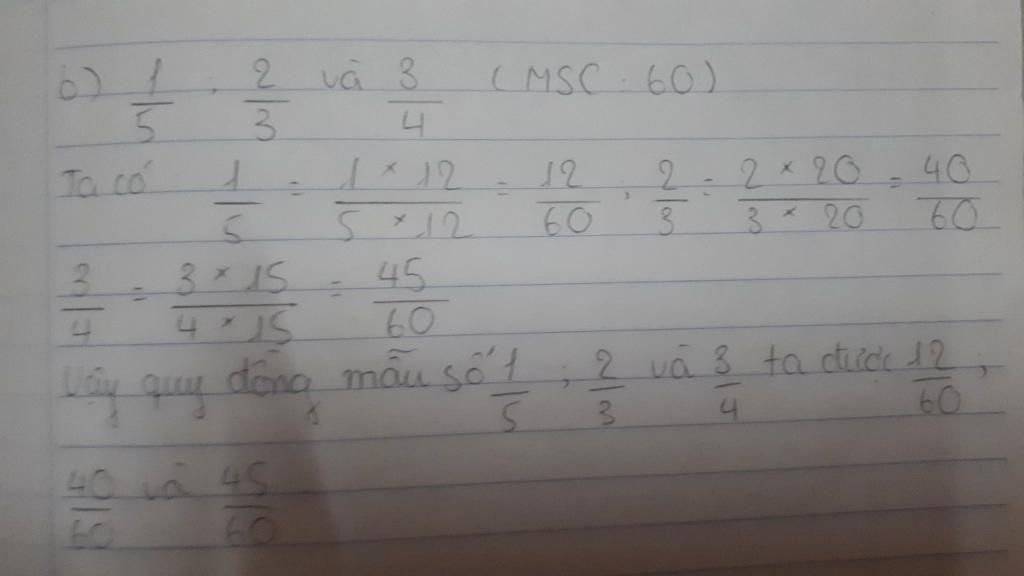 b) 1/5 ; 2/3 và 3/4 (MSC : 60)
Ta có 1/5 = 1 × 12 / 5 × 12 = 12/60 ; 2/3 = 2 × 20 / 3 × 20 = 40/60
3/4 = 3 × 15 / 4 × 15 = 45/60
Vậy quy đồng mẫu số 1/5 ; 2/3 và 3/4 ta được 12/60 ;
40/60 và 45/60